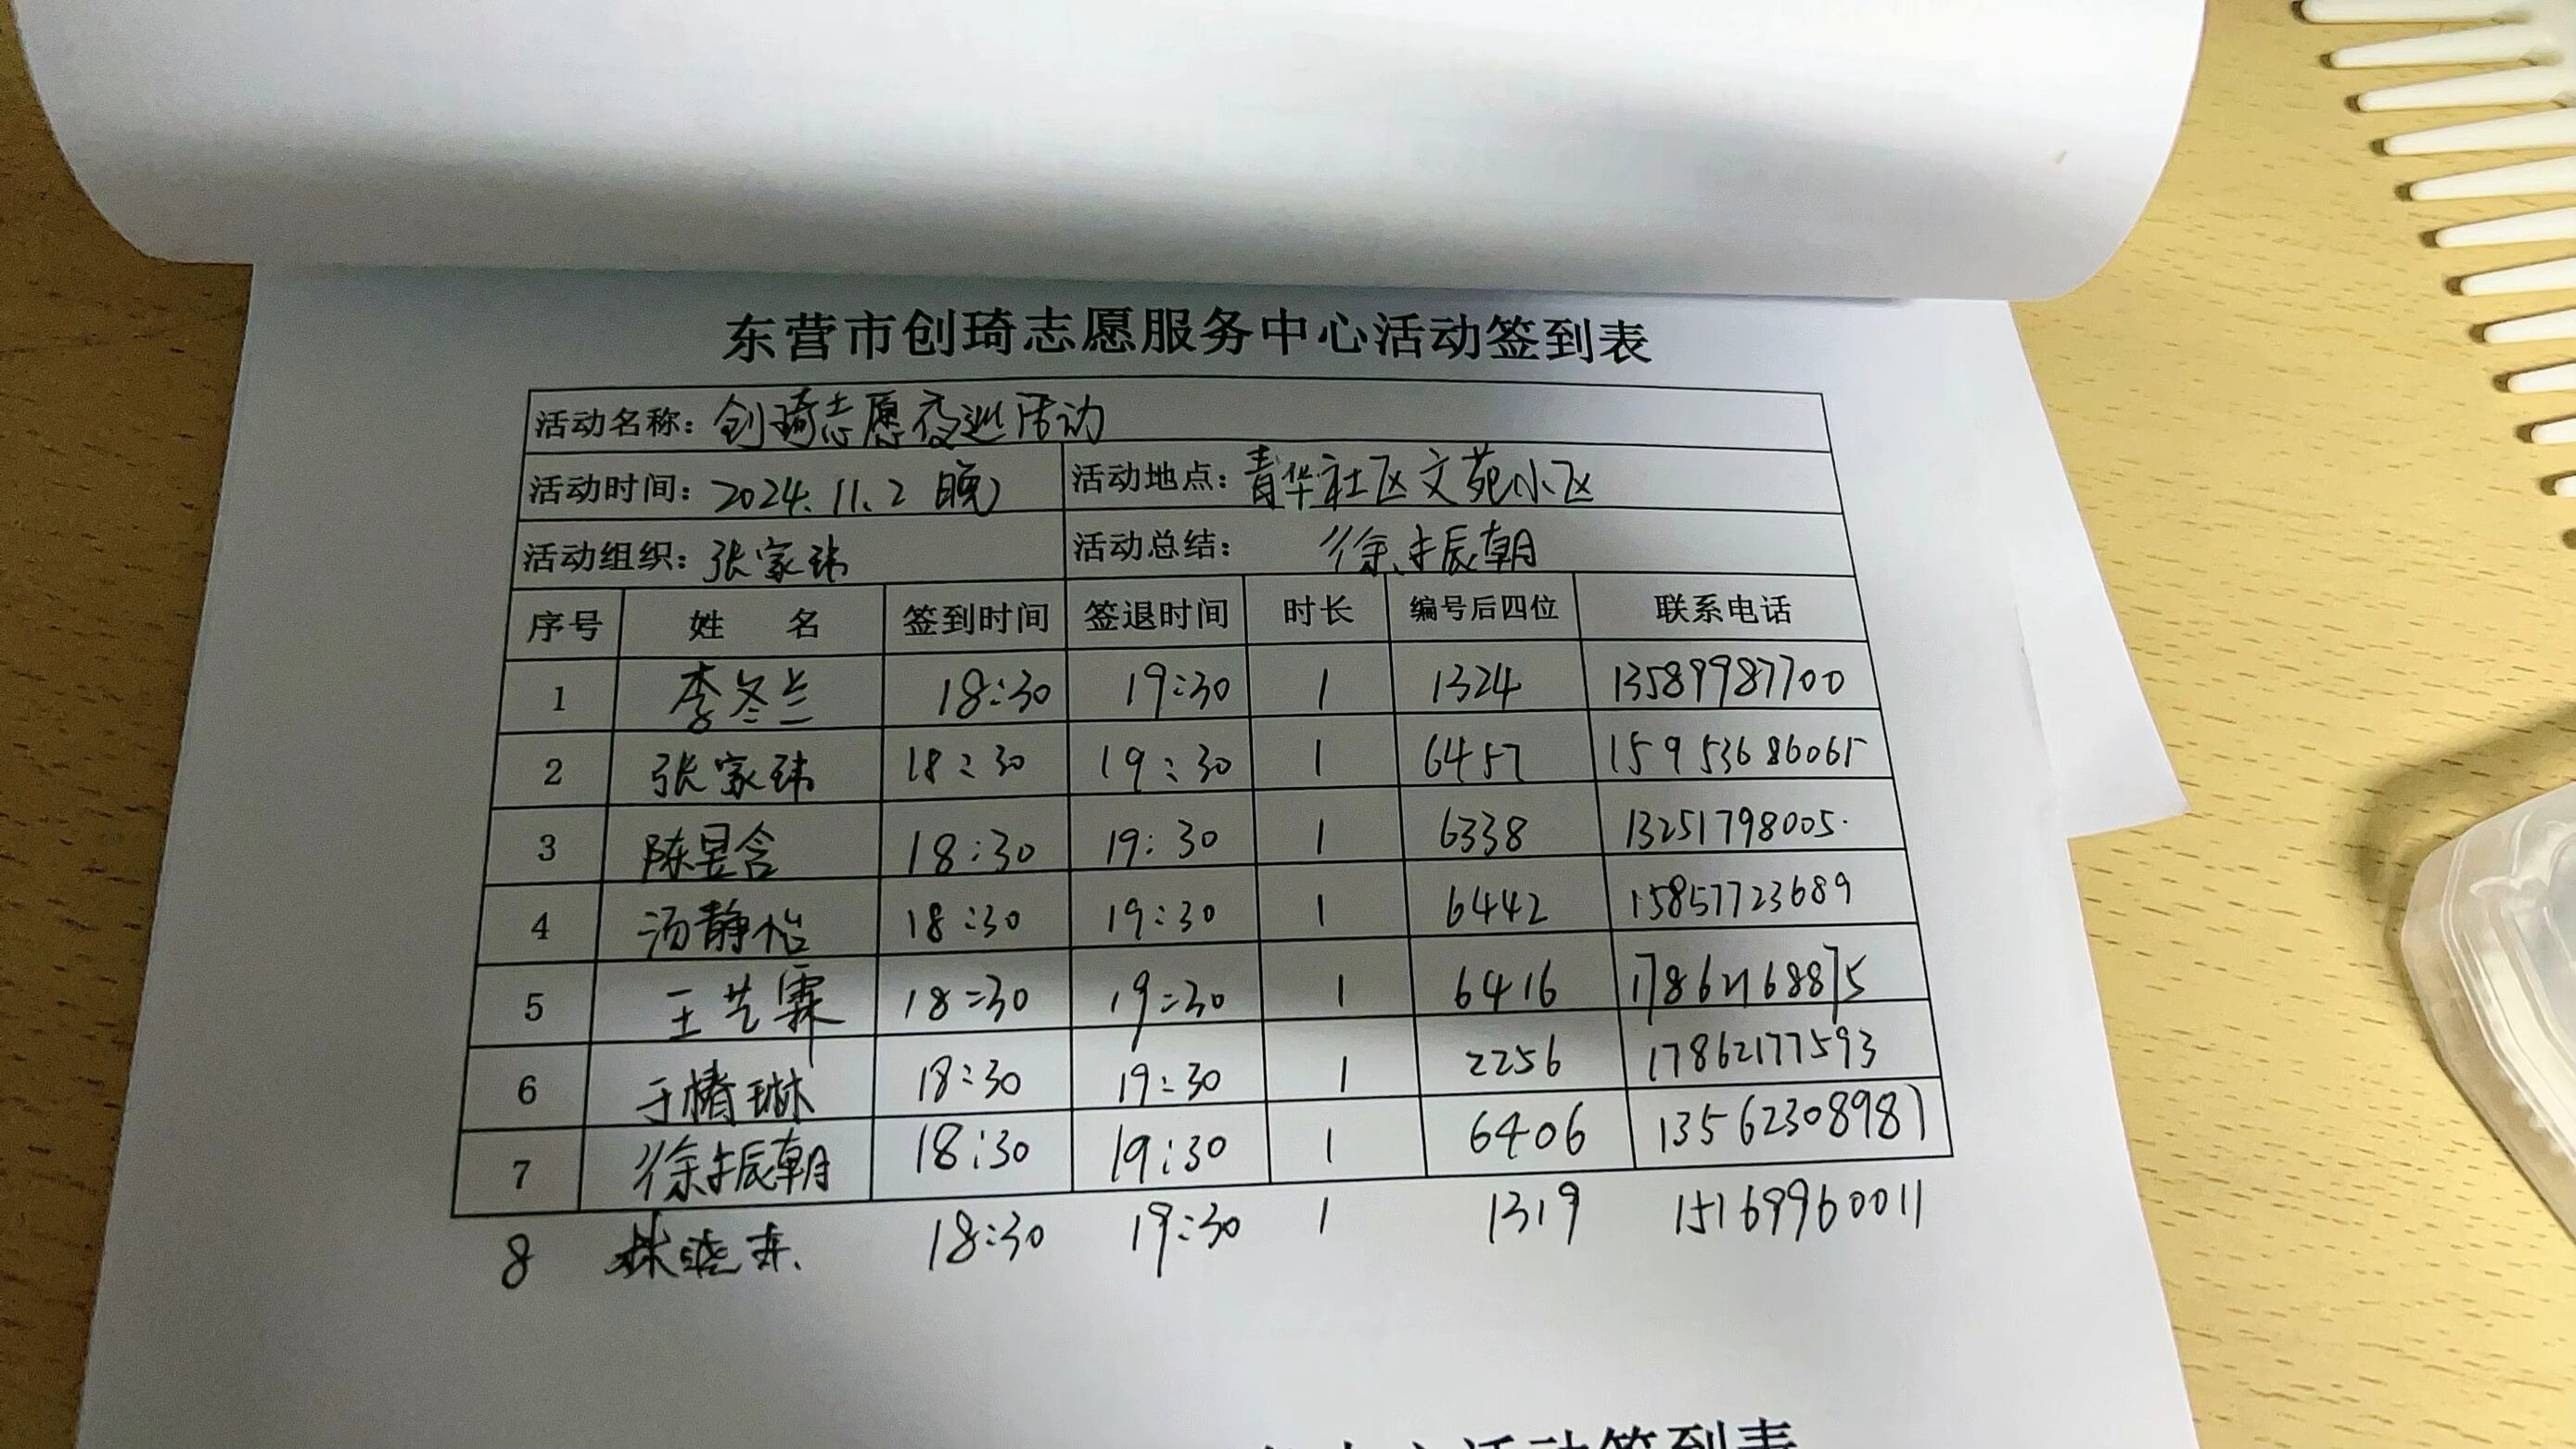 东营市创琦志愿服务中心活动签到表
活动名称：创琦志愿夜巡活动
活动时间：2024.11.2 晚 活动地点：青华社区文苑小区
活动组织：张家玮 活动总结：徐振朝
序号 姓 名 签到时间 签退时间 时长 编号后四位 联系电话
1 李冬兰 18:30 19:30 1 1324 13589987700
2 张家玮 18:30 19:30 1 6457 15953686065
3 陈昱含 18:30 19:30 1 6338 13251798005
4 汤静怡 18:30 19:30 1 6442 15857723689
5 王艺霖 18:30 19:30 1 6416 17862168875
6 于楮琳 18:30 19:30 1 2256 17862177593
7 徐振朝 18:30 19:30 1 6406 13562308981
8 林晓东 18:30 19:30 1 1319 15169960011
活动签到表